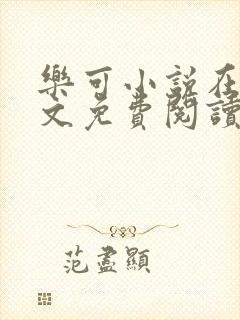 樂可小說在
文免費閱讀
范盡顯